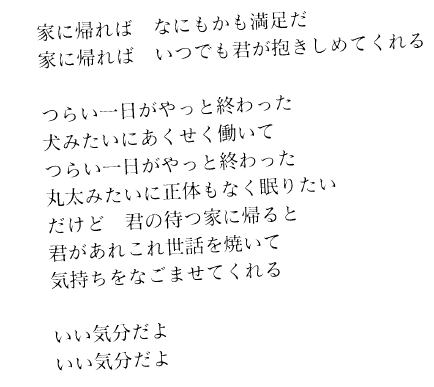 家に帰れば　なにもかも満足だ
家に帰れば　いつでも君が抱きしめてくれる
つらい一日がやっと終わった
犬みたいにあくせく働いて
つらい一日がやっと終わった
丸太みたいに正体もなく眠りたい
だけど　君の待つ家に帰ると
君があれこれ世話を焼いて
気持ちをなごませてくれる
いい気分だよ
いい気分だよ